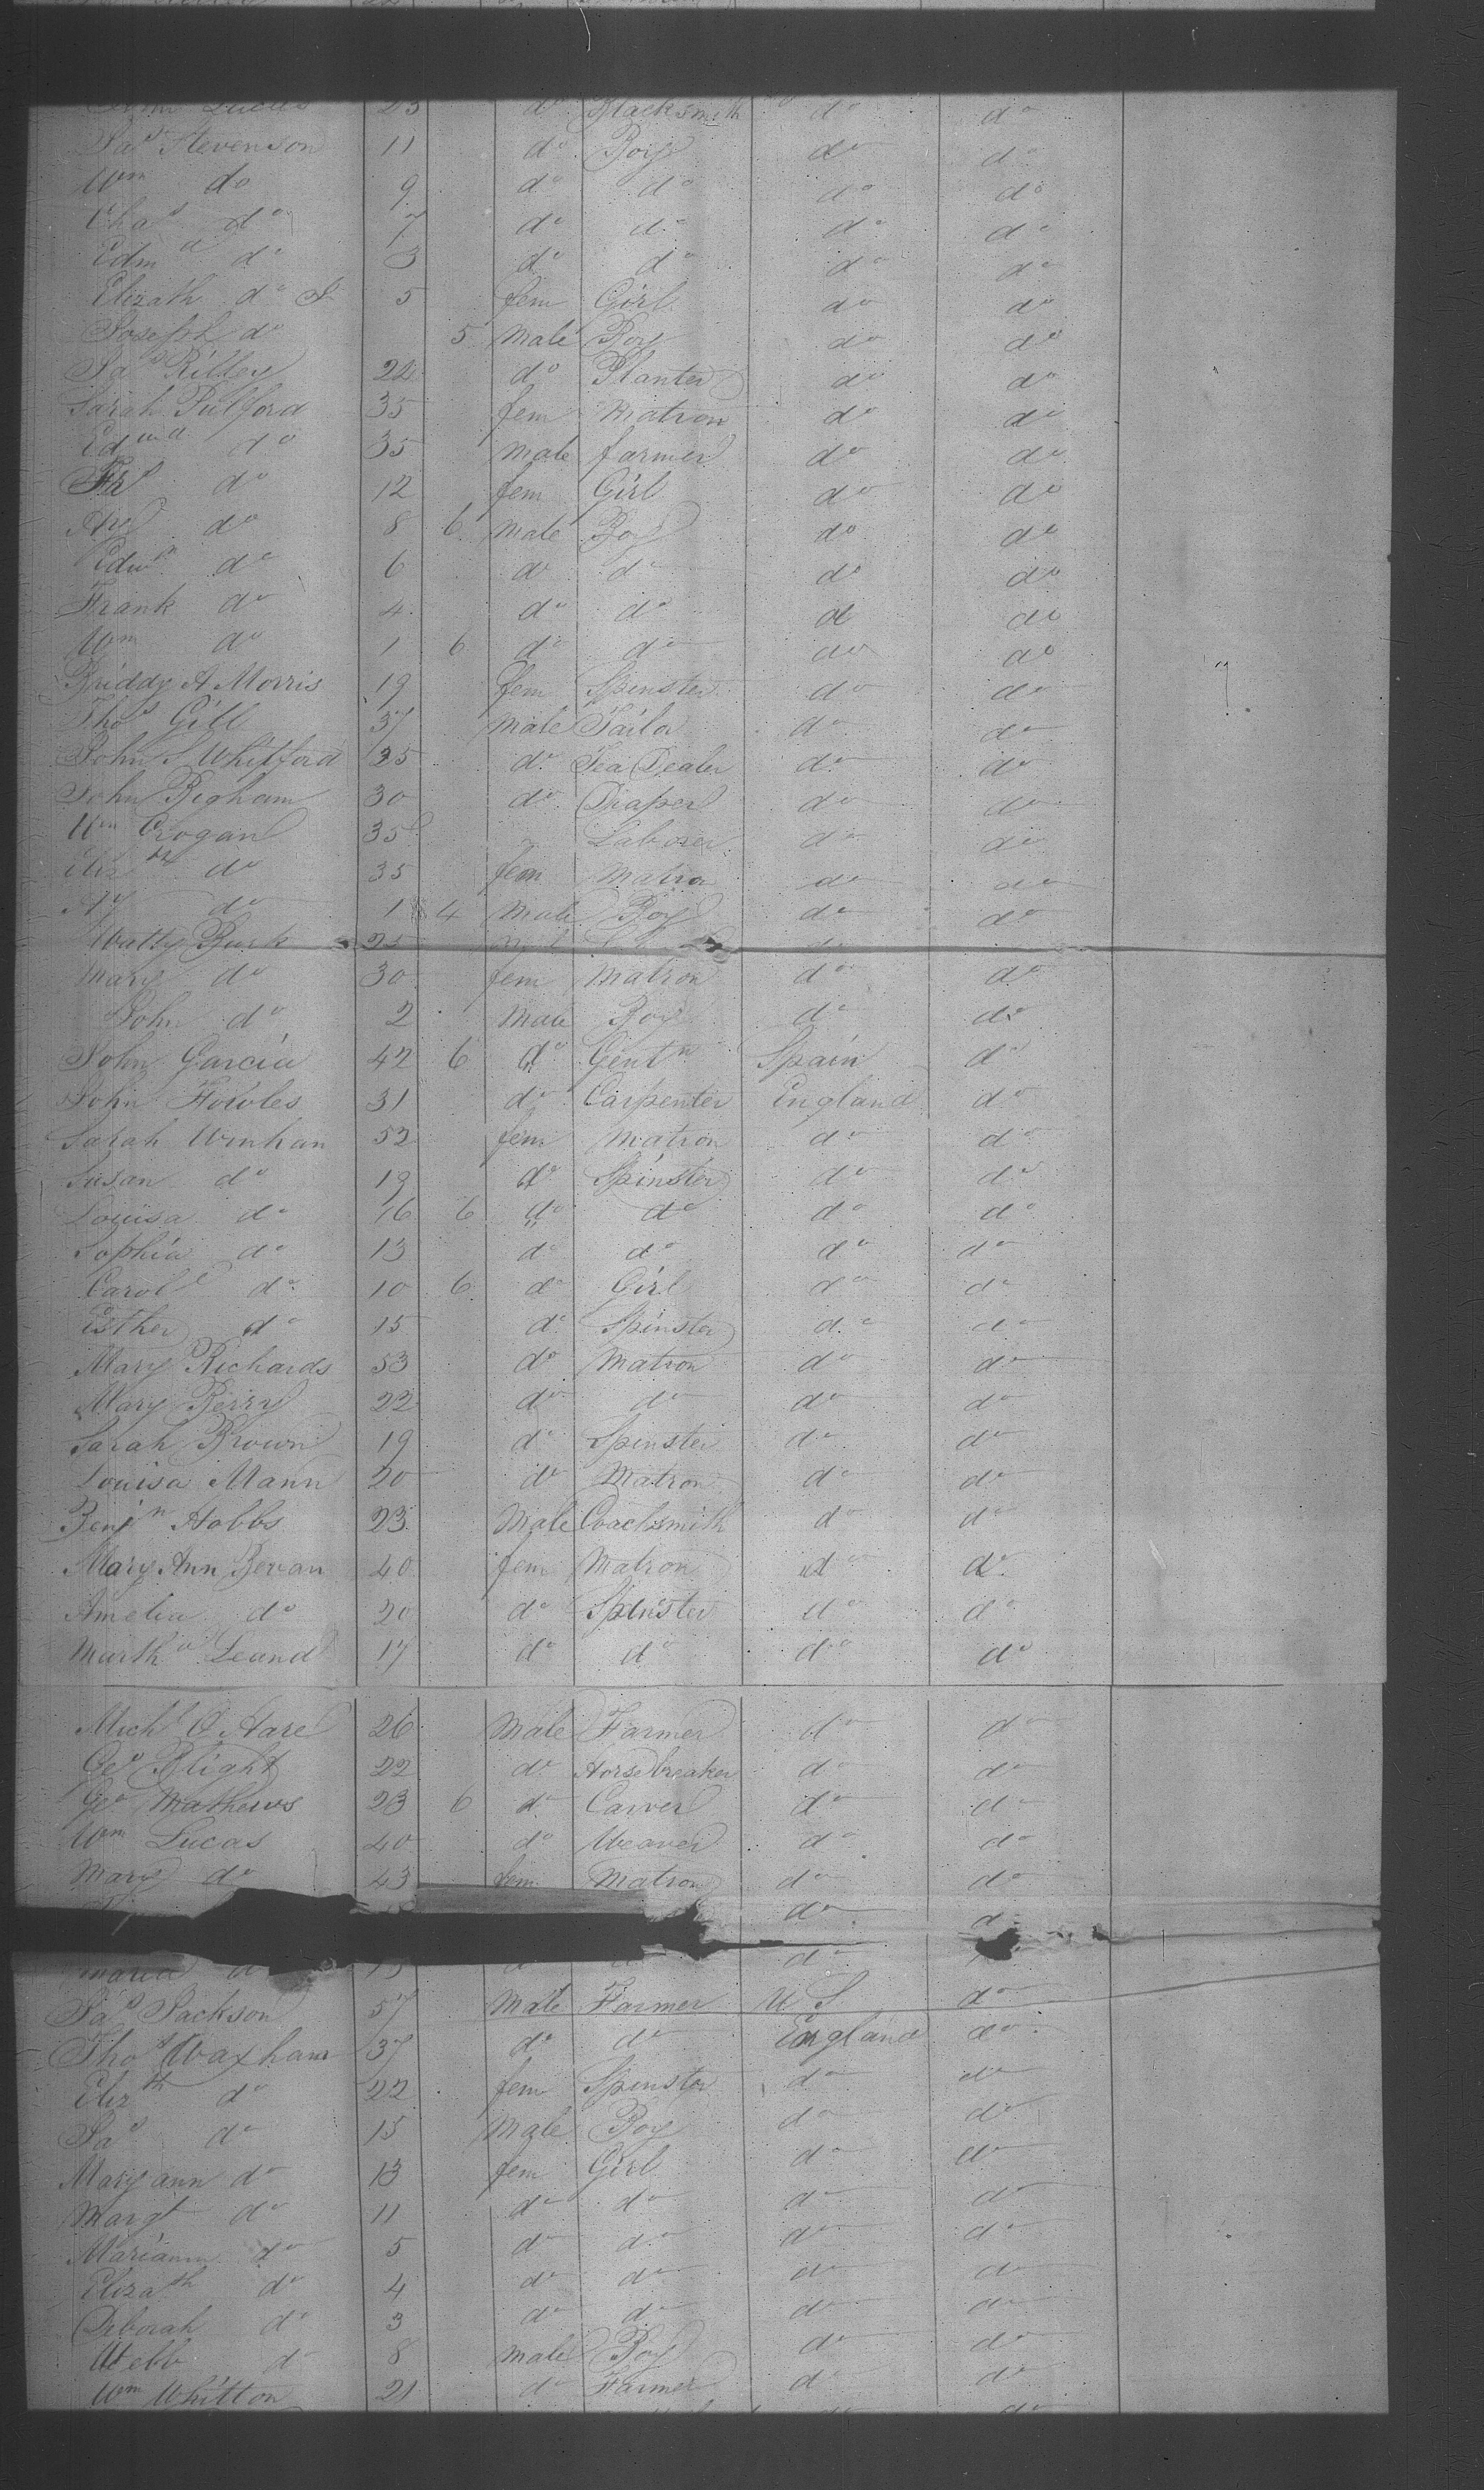 Lucas 23 do Blacksmith do do
Jas Stevenson 11 do Boy do do
Wm do 9 do do do do
Chas do 7 do do do do
Edmd do 3 do do do do
Elizath do 5 fem Girl do do
Joseph do 5 Male Boy do do
Jas Rilley 22 do Planter do do
Sarah Pulford 35 fem Matron do do
Edmd do 35 Male farmer do do
do 12 fem Girl do do
do 8 6 Male Boy do do
Edwd do 6 do do do do
Frank do 4 do do do do
Wm do 1 6 do do do do
Briddy A Morris 19 fem Spinster do do
Thos Gill 37 Male Tailor do do
John S Whitford 35 do Tea Dealer do do
John Bigham 30 do Draper do do
Wm Crogan 35 Laborer do do
Elizth do 35 fem Matron do do
do 1 4 Male Boy do do
Watty Burk 25
Mary do 30 fem Matron do do
John do 2 Male Boy do do
John Garcia 42 6 do Gentn Spain do
John Fowles 31 do Carpenter England do
Sarah Winhan 52 fem Matron do do
Susan do 19 do Spinster do do
Louisa do 16 6 do do do do
Sophia do 13 do do do do
Carole do 10 6 do Girl do do
Esther do 15 do Spinster do do
Mary Richards 53 do Matron do do
Mary Berry 22 do do do do
Sarah Brown 19 do Spinster do do
Louisa Mann 20 do Matron do do
Benjn Hobbs 23 Male Coachsmith do do
Mary Ann Bevan 40 fem Matron do do
Amelia do 20 do Spinster do do
Martha Leand 17 do do do do
Michl O Hare 26 Male Farmer do do
Geo Blight 22 do Horsebreaker do do
Geo Mathews 23 6 do Carver do do
Wm Lucas 40 do Weaver do do
Mary do 43 fem Matron do do
do do
Maria do 13 do do do
Jas Jackson 57 Male Farmer U S do
Thos Waxham 37 do do England do
Elizth do 22 fem Spinster do do
Jas do 15 Male Boy do do
Mary ann do 13 fem Girl do do
Margt do 11 do do do do
Mariann do 5 do do do do
Elizath do 4 do do do do
Deborah do 3 do do do do
Webb do 8 Male Boy do do
Wm Whitton 21 do Farmer do do